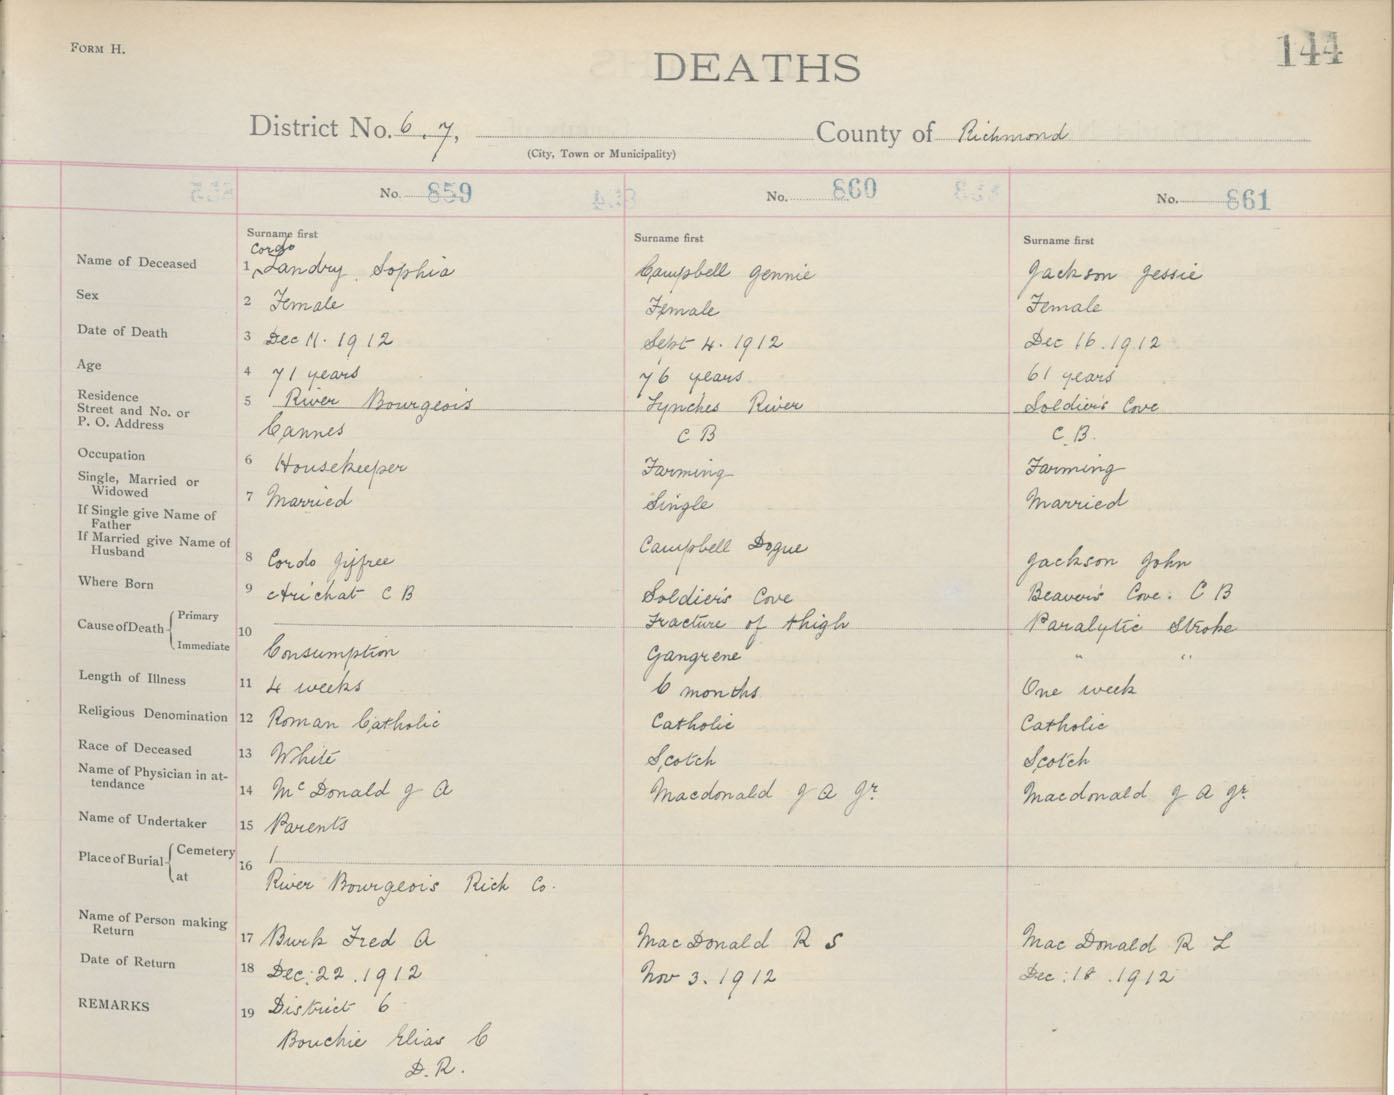 FORM H.
144
DEATHS
District No. 6. 7, County of Richmond
(City, Town or Municipality)
No. 859 No. 860 No. 861
Surname first Surname first Surname first
Cordo
Name of Deceased 1 Landry Sophia Campbell Jennie Jackson Jessie
Sex 2 Female Female Female
Date of Death 3 Dec 11. 1912 Sept 4. 1912 Dec 16. 1912
Age 4 71 years 76 years 61 years
Residence
Street and No. or 5 River Bourgeois Lynches River Soldier's Cove
P. O. Address Cannes C B C. B.
Occupation 6 Housekeeper Farming Farming
Single, Married or
Widowed 7 Married Single Married
If Single give Name of
Father
If Married give Name of Campbell
Husband 8 Cordo Jackson John
Where Born 9 Arichat C B Soldier's Cove Beaver's Cove. C B
Cause of Death Primary Fracture of thigh Paralytic Stroke
10
Immediate Consumption Gangrene " "
Length of Illness 11 4 weeks 6 months One week
Religious Denomination 12 Roman Catholic Catholic Catholic
Race of Deceased 13 White Scotch Scotch
Name of Physician in at-
tendance 14 McDonald J A Macdonald J A Jr. Macdonald J A Jr.
Name of Undertaker 15 Parents
Place of Burial Cemetery
16
at River Bourgeois Rich Co.
Name of Person making
Return 17 Burk Fred A MacDonald R S MacDonald R L
Date of Return 18 Dec. 22. 1912 Nov 3. 1912 Dec. 18. 1912
REMARKS 19 District 6
Bouchie Elias C
D. R.